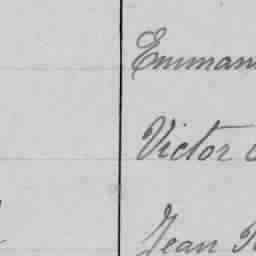 Emman
Victor
Jean